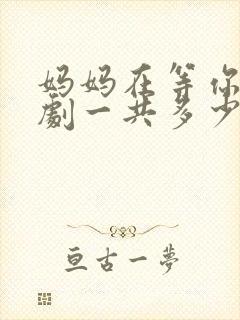 妈妈在等你
劇一共多少
亘古一夢